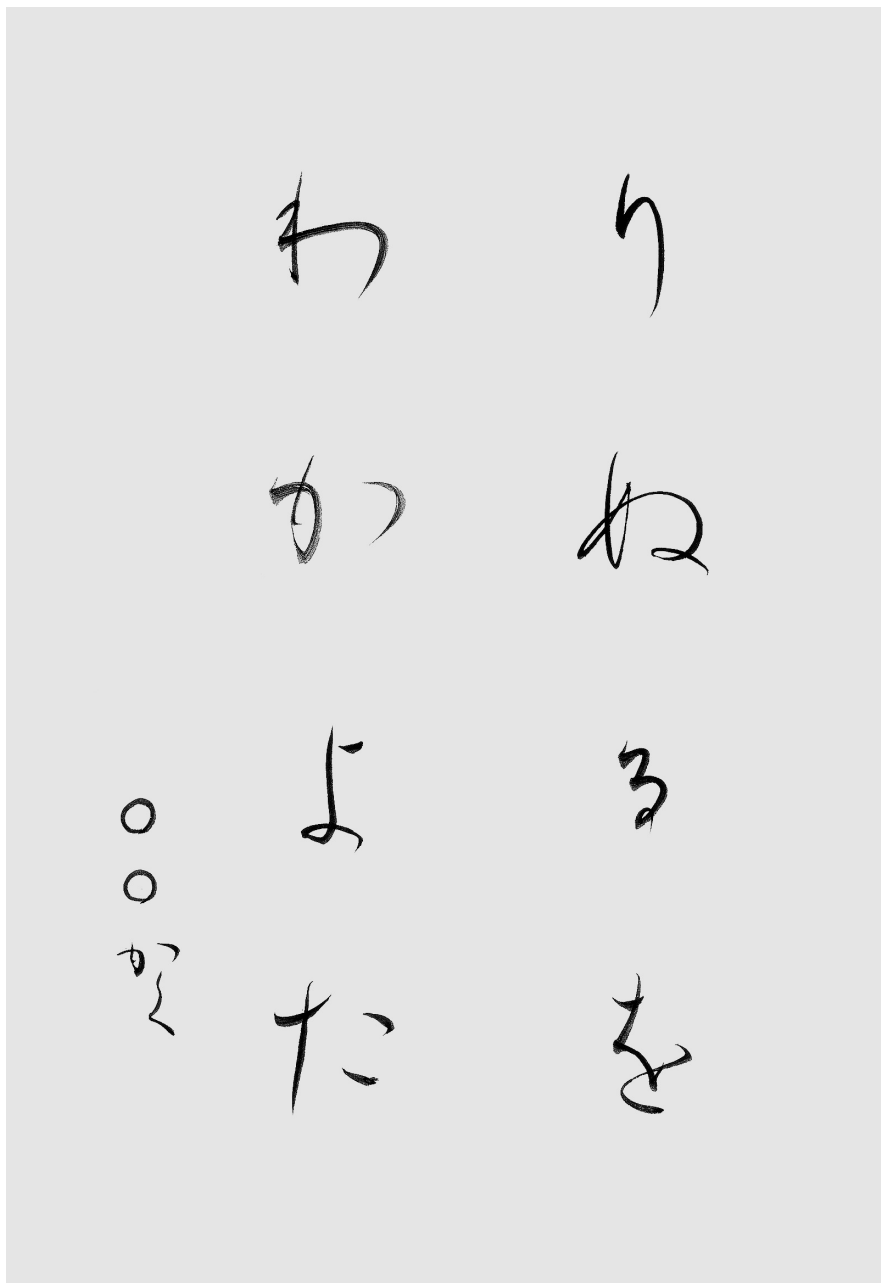 りぬるを
わかよた
○○かく